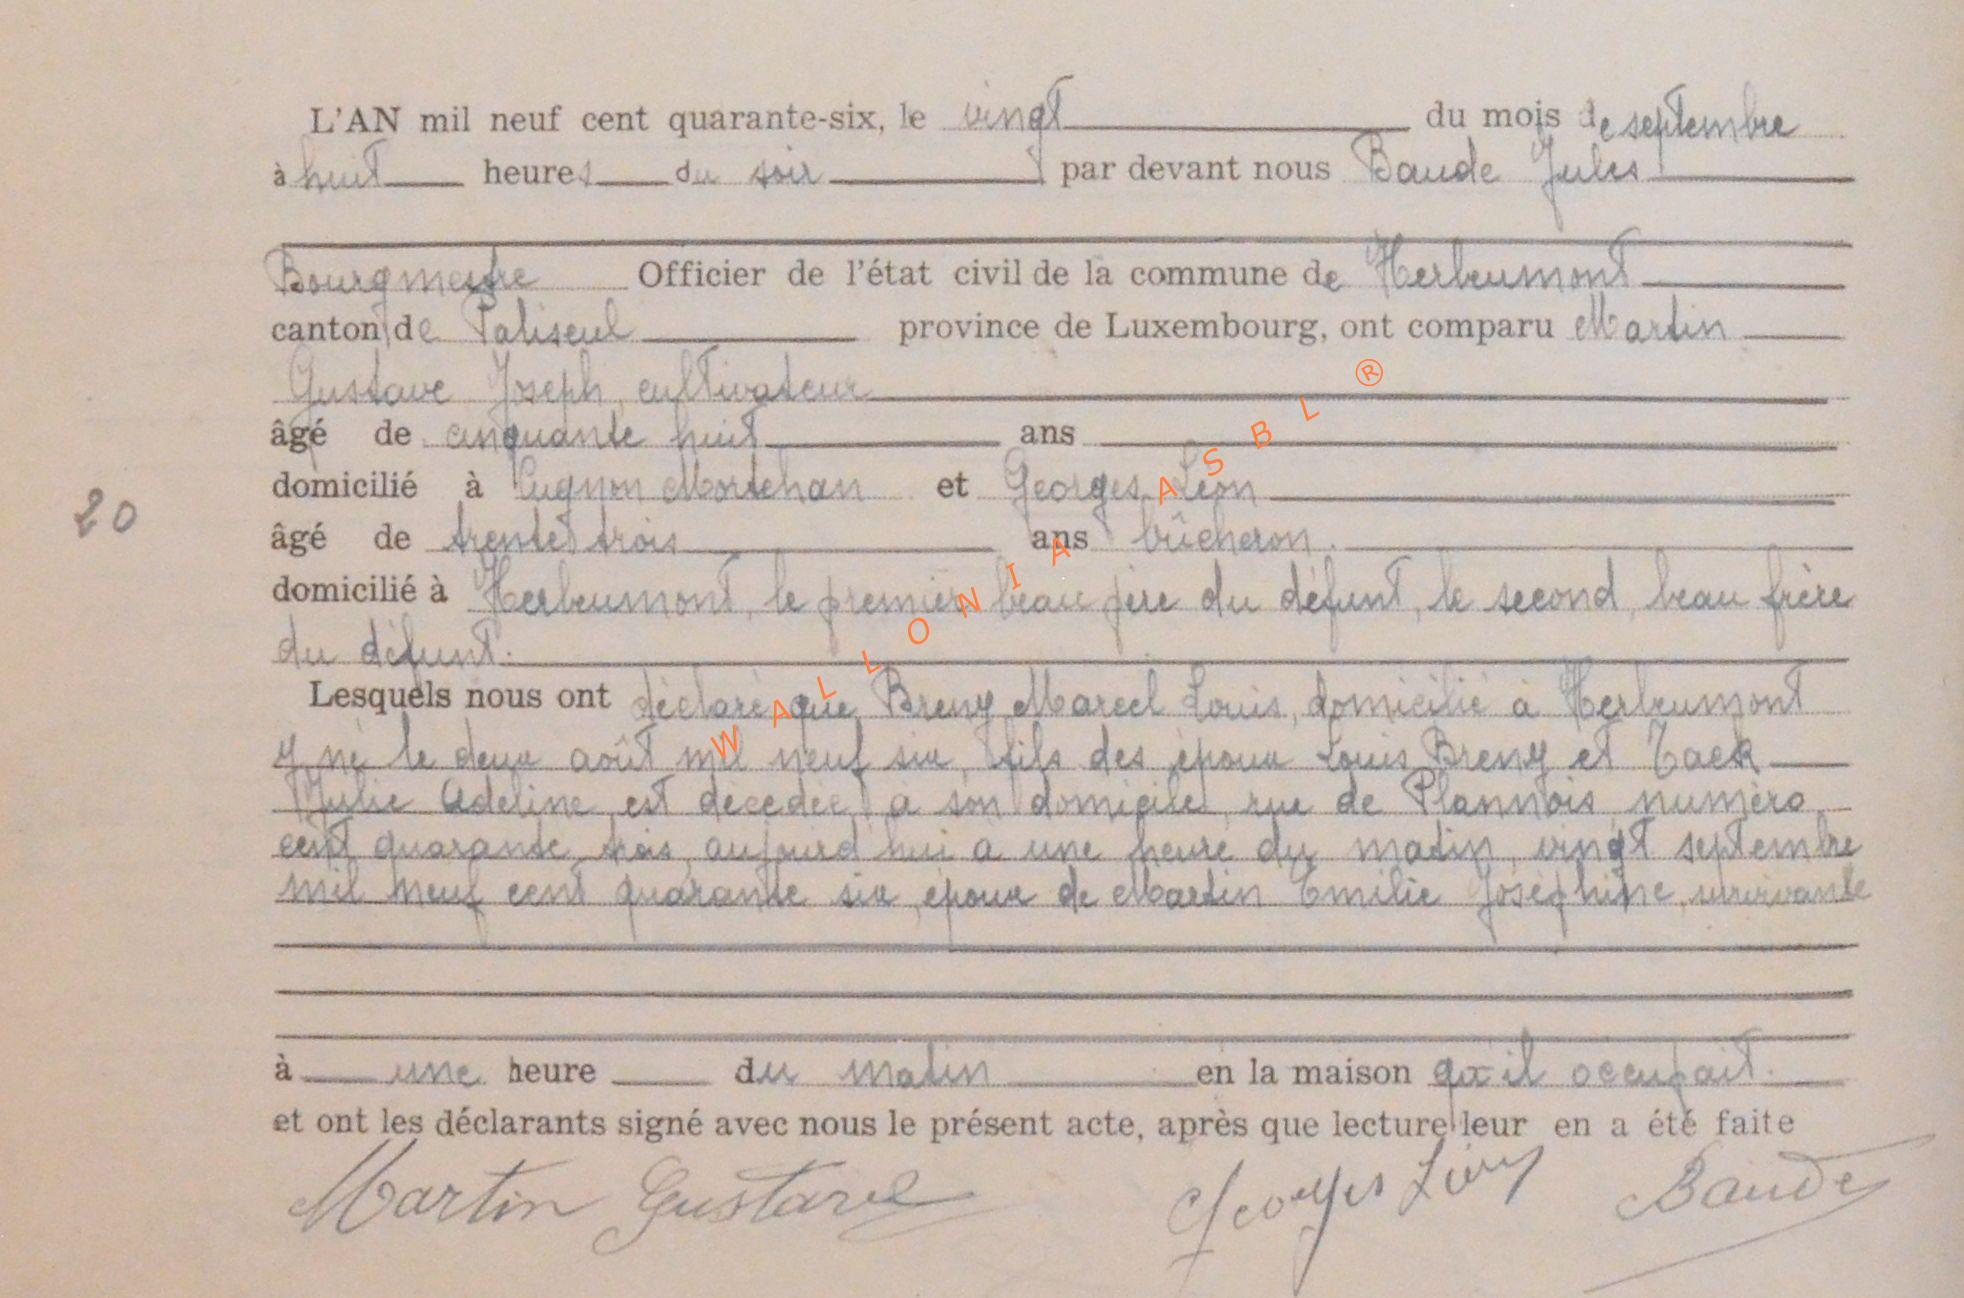 L'AN mil neuf cent quarante-six, le vingt du mois de septembre
à huit heures du soir par devant nous Baude Jules
Bourgmestre Officier de l'état civil de la commune de Herbeumont
canton de Paliseul province de Luxembourg, ont comparu Martin
Gustave Joseph, cultivateur
âgé de cinquante huit ans
domicilié à Cugnon Mortehan et Georges Léon
20
âgé de trente trois ans bûcheron.
domicilié à Herbeumont, le premier beau père du défunt, le second, beau frère
du défunt.
Lesquels nous ont déclaré que Breny Marcel Louis, domicilié à Herbeumont
y né le deux août mil neuf six, fils des époux Louis Breny et Tack
Julie Adeline est décédée à son domicile rue de Plannois numéro
cent quarante trois, aujourd'hui à une heure du matin, vingt septembre
mil neuf cent quarante six, époux de Martin Emilie Joséphine, survivante
à une heure du matin en la maison qu'il occupait.
et ont les déclarants signé avec nous le présent acte, après que lecture leur en a été faite
Martin Gustave Georges Léon Baude
WALLONIA ASBL ®